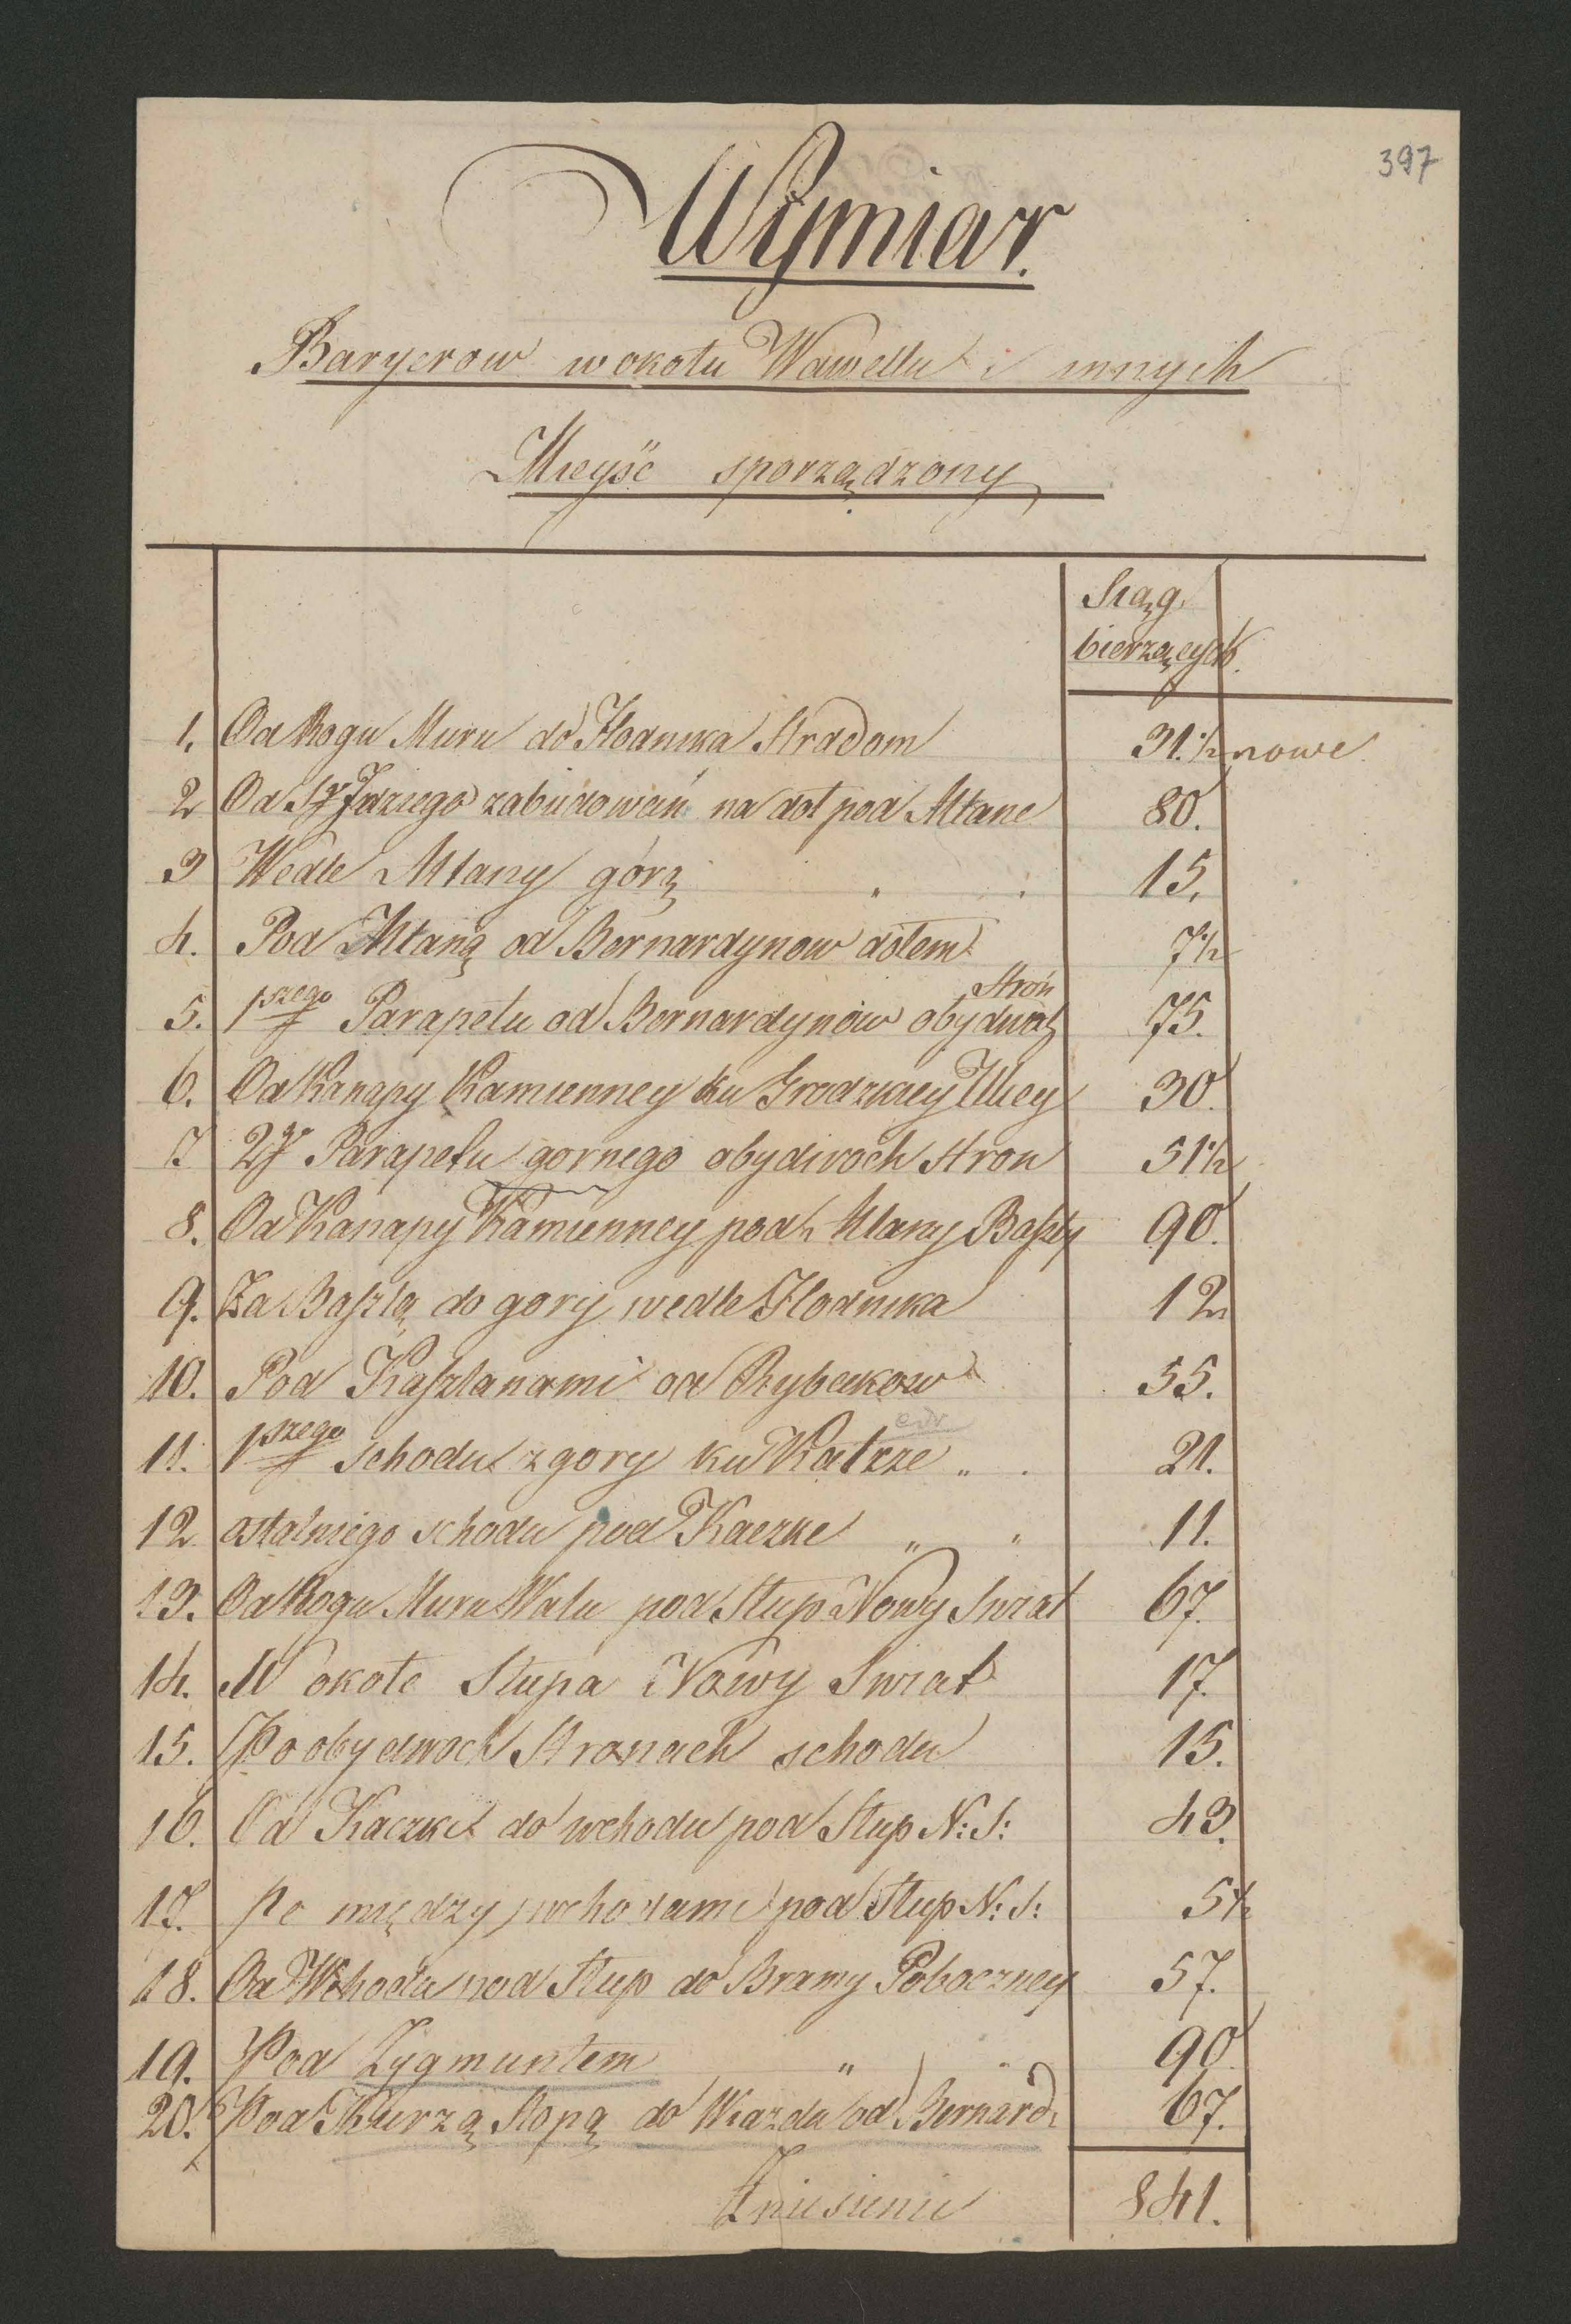 397
Wymiar.
Baryerow wokołu Wawellu i innych
Mieysć sporządzony
Siąg.
bierzących
1. Od Rogu Muru do Hodnika Stradom 31.½ nowe
2 Od Sgo Idziego zabudowań na doł pod Altane 80.
3 Wedle Altany górą 15.
4. Pod Altaną od Bernardynow dołem 7½
5. 1szego Parapetu od Bernardynów obydwóch Stron 75.
6. Od Kanapy Kamienney ku Grodzkiey Ulicy 30.
7 2go Parapetu gornego obydwoch Stron 51½
8. Od Kanapy Kamienney pod Altany Baszty 90.
9. Za Basztą do gory wedle Hodnika 12
10. Pod Kasztanami od Rybakow 55.
11. 1szego schodu z gory ku Katrze „ . 21.
12 ostatniego schodu pod Kaczke „ „ 11.
13. Od Rogu Muru Walu pod Słup Nowy Swiat 67.
14. W około Słupa Nowy Swiat 17.
15. Po obydwoch Stronach schodu 15.
16. Od Kaczki do wchodu pod Słup N: S: 43.
17. Po między wchodami pod Słup N: S: 5½
18. Od Wchodu pod Słup do Bramy Poboczney 57.
19. Pod Zygmuntem „ 90
20. Pod Kurzą Stopą do Wiazdu od Bernard: 67.
Zniesieniu 841.